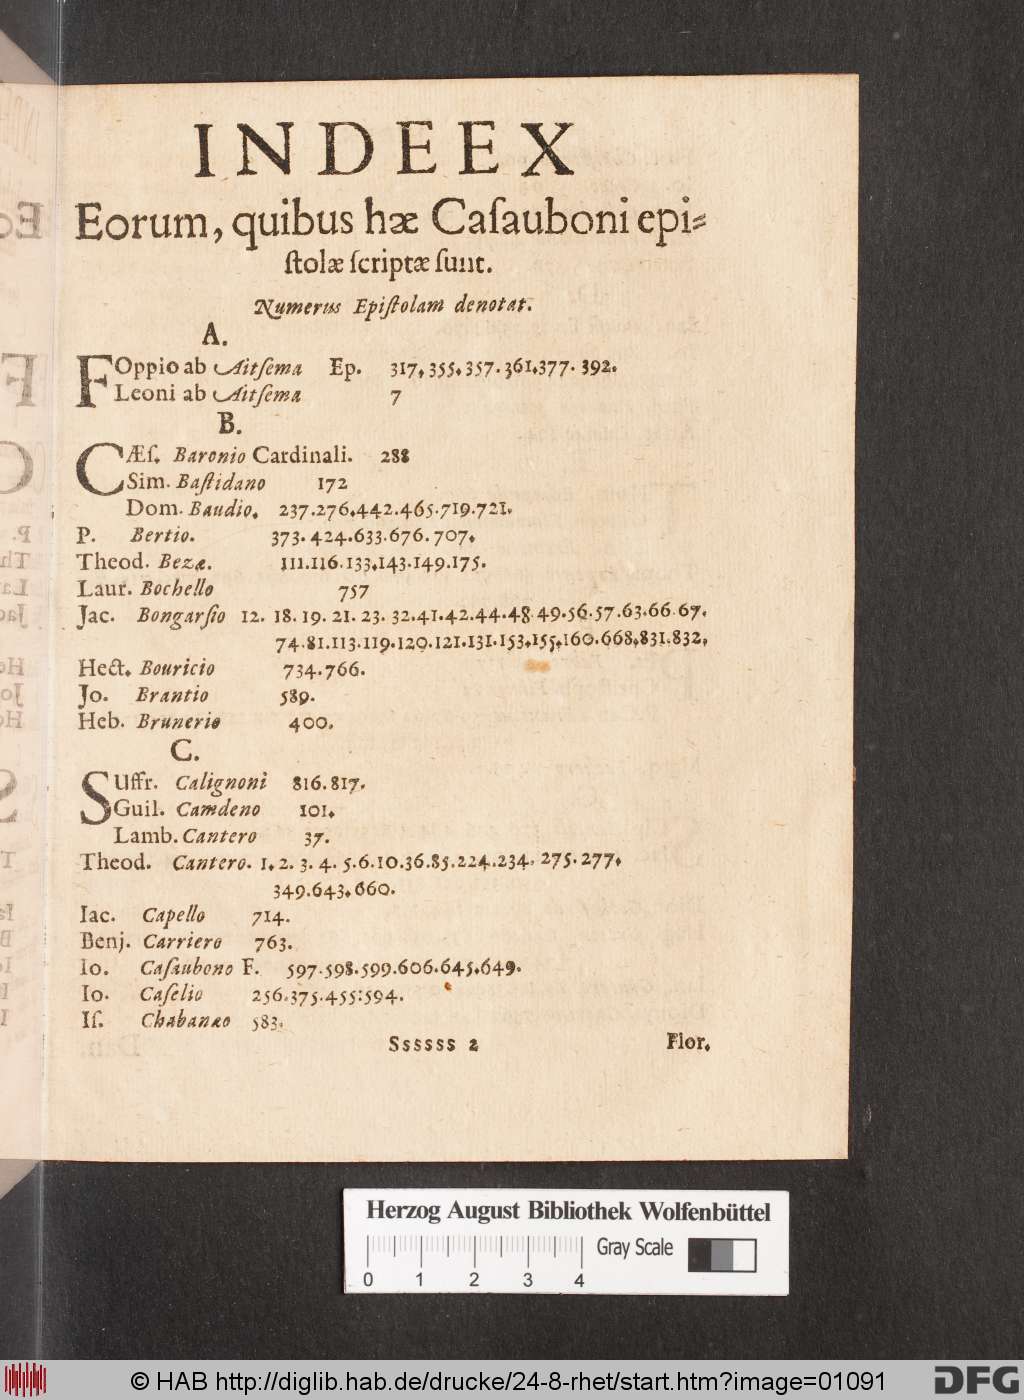 INDEEX
Eorum, quibus hæ Caſauboni epi-
ſtolæ ſcriptæ ſunt.
Numerus Epiſtolam denotat.
A.
FOppio ab Aitſema Ep. 317.355.357.361.377.392.
Leoni ab Aitſema 7
B.
CÆſ. Baronio Cardinali. 288
Sim. Baſtidano 172
Dom. Baudio. 237.276.442.465.719.721.
P. Bertio. 373.424.633.676.707.
Theod. Bezæ. 111.116.133.143.149.175.
Laur. Bochello 757
Jac. Bongarſio 12. 18. 19. 21. 23. 32.41.42.44.48.49.56.57.63.66.67.
74.81.113.119.120.121.131.153.155.160.668.831.832.
Hect. Bouricio 734.766.
Jo. Brantio 589.
Heb. Brunerio 400.
C.
SUffr. Calignoni 816.817.
Guil. Camdeno 101.
Lamb. Cantero 37.
Theod. Cantero. 1.2. 3. 4. 5.6.10.36.85.224.234. 275.277.
349.643.660.
Iac. Capello 714.
Benj. Carriero 763.
Io. Caſaubono F. 597.598.599.606.645.649.
Io. Caſelio 256.375.455:594.
Iſ. Chabanæo 583.
Ssssss 2 Flor.
Herzog August Bibliothek Wolfenbüttel
Gray Scale
0 1 2 3 4
© HAB http://diglib.hab.de/drucke/24-8-rhet/start.htm?image=01091
DFG